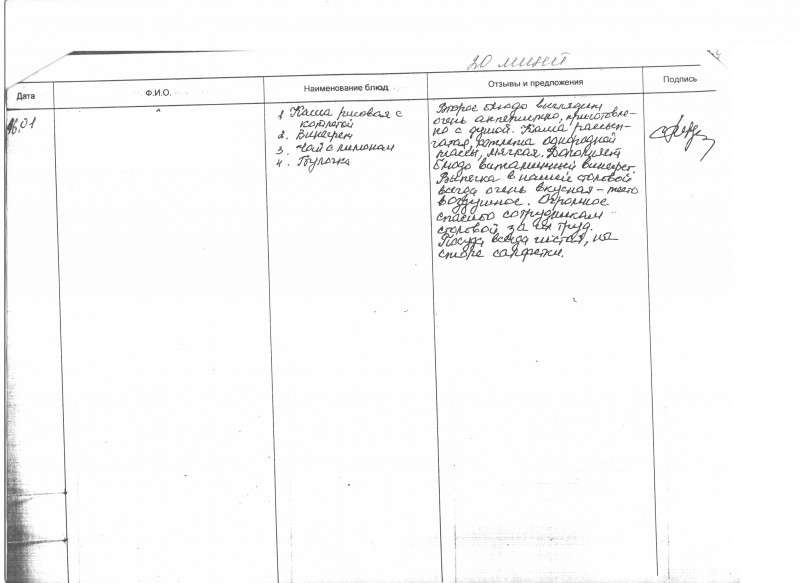 20 линей
Дата
Ф.И.О.
Наименование блюд
Отзывы и предложения
Подпись
16.01
1 Каша рисовая с
котлетой
2. Винегрет
3. Чай с лимоном
4. Булочка
Второе блюдо выглядит
очень аппетитно, приготовле-
но с душой. Каша рассып-
чатая, котлета однородной
массы, мягкая. Дополняет
блюдо витаминный винегрет.
Выпечка в нашей столовой
всегда очень вкусная – тесто
воздушное. Огромное
спасибо сотрудникам
столовой за их труд.
Посуда всегда чистая, на
столе салфетки.